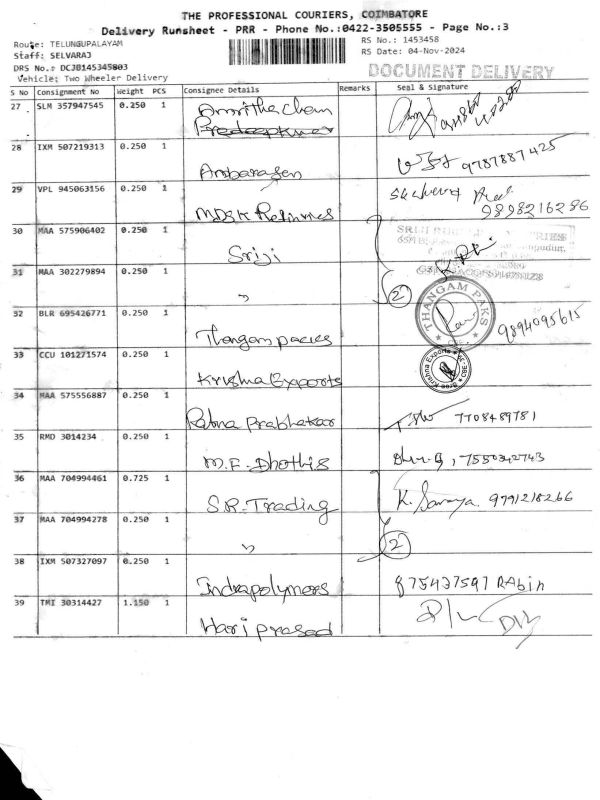 THE PROFESSIONAL COURIERS, COIMBATORE
Delivery Runsheet - PRR - Phone No.:0422-3505555 - Page No.:3
Route: TELUNGUPALAYAM
Staff: SELVARAJ
DRS No.: DCJB0145345803
Vehicle: Two Wheeler Delivery
RS No.: 1453458
RS Date: 04-Nov-2024
DOCUMENT DELIVERY
S No Consignment No Weight PCS Consignee Details Remarks Seal & Signature
27 SLM 357947545 0.250 1
Amritha Cham
Pradeepkumar
28 IXM 507219313 0.250 1
Ambaragen 9787887425
29 VPL 945063156 0.250 1
MDSK Refinnes 9898216286
30 MAA 575906402 0.250 1
Sriji
31 MAA 302279894 0.250 1
" 2
32 BLR 695426771 0.250 1
Thangam pacies THANGAM PAKS 9894095615
33 CCU 101271574 0.250 1
Krishna Exports Sree Krishna Exports
34 MAA 575556887 0.250 1
Ratna Prabhakar 7708489781
35 RMD 3014234 0.250 1
M.F. Dhothis 7550342743
36 MAA 704994461 0.725 1
S.R. Trading K. Saranya 9791218266
37 MAA 704994278 0.250 1
" 2
38 IXM 507327097 0.250 1
Indrapolymers 875437597 RAbin
39 TMI 30314427 1.150 1
Hari prasad